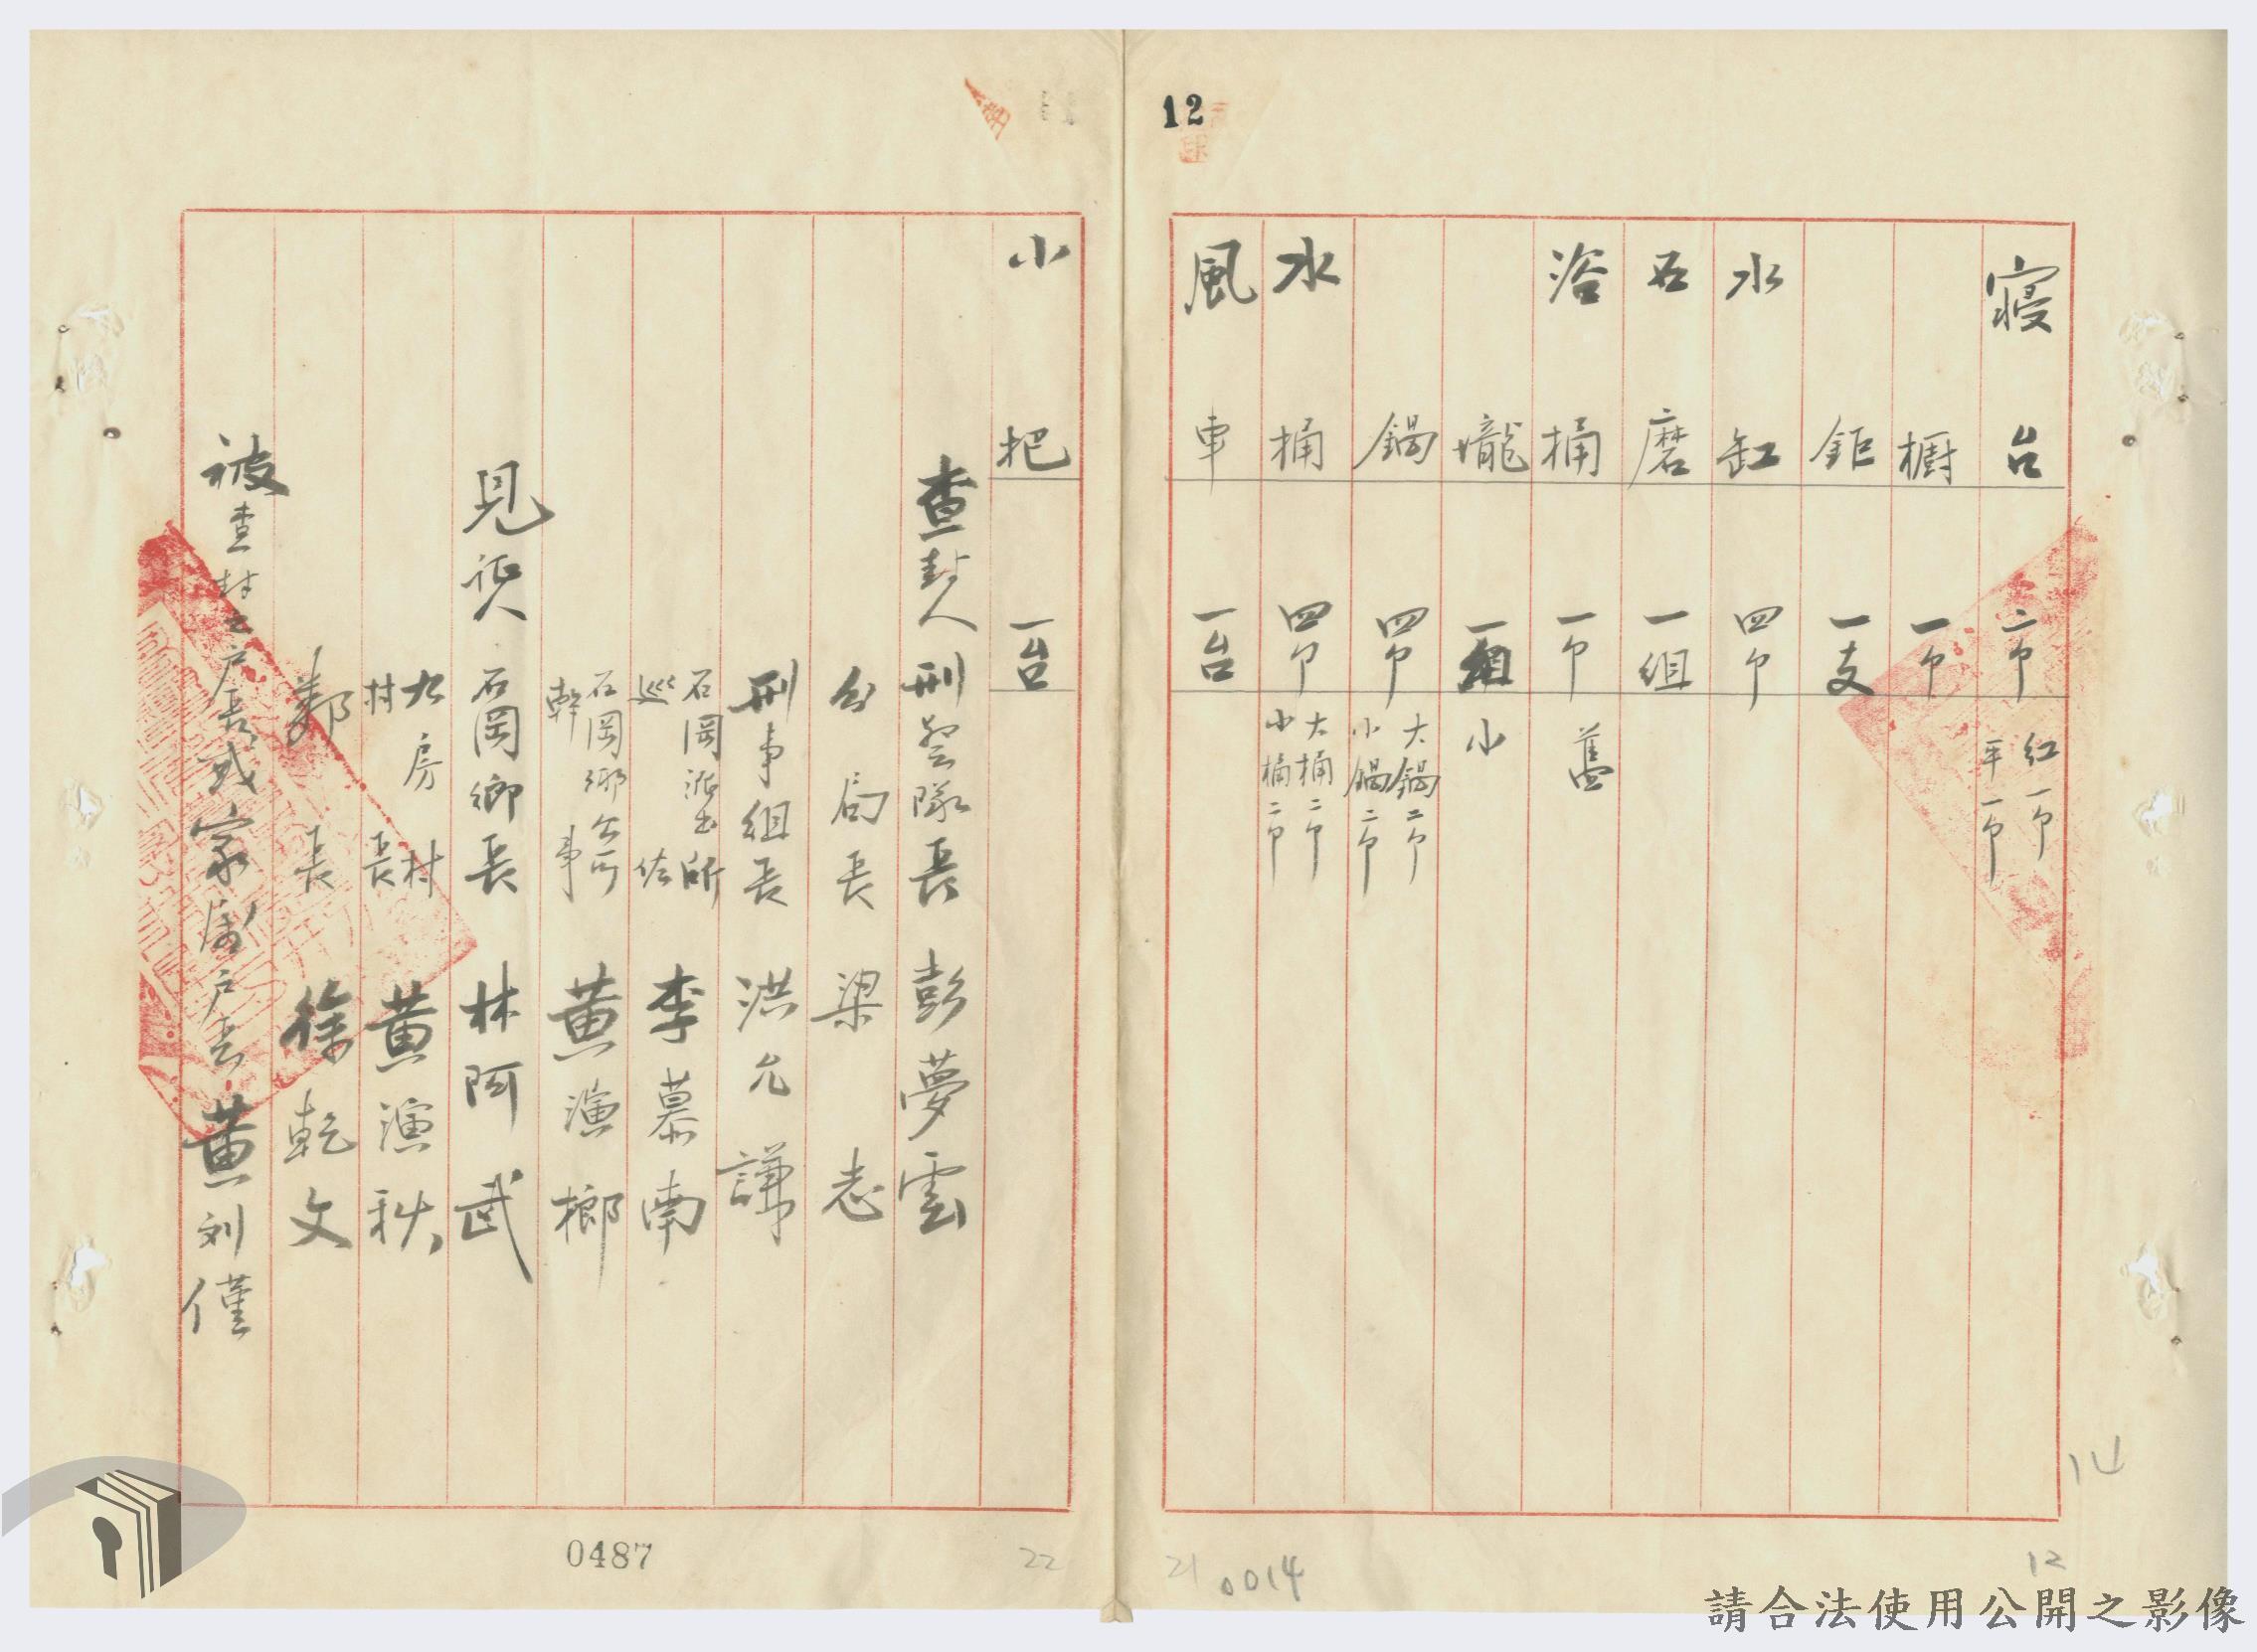 12
寝台 二个 紅一个 平一个
橱 一个
鉅 一支
水缸 四个
石磨 一組
浴桶 一个 舊
壠 一組 小
鍋 四个 大鍋二个 小鍋二个
水桶 四个 大桶二个 小桶二个
風車 一台
小把 一台
查封人 刑警隊長 彭夢雲
分局長 梁志
刑事組長 洪允謙
石岡派出所 巡佐 李慕南
石岡鄉公所 幹事 黄演榔
見証人 石岡鄉長 林阿武
九房村 村長 黄演秋
鄰長 徐乾文
被查封之户長或家屬户長 黄刘僅
0487
22
21
0014
12
14
請合法使用公開之影像